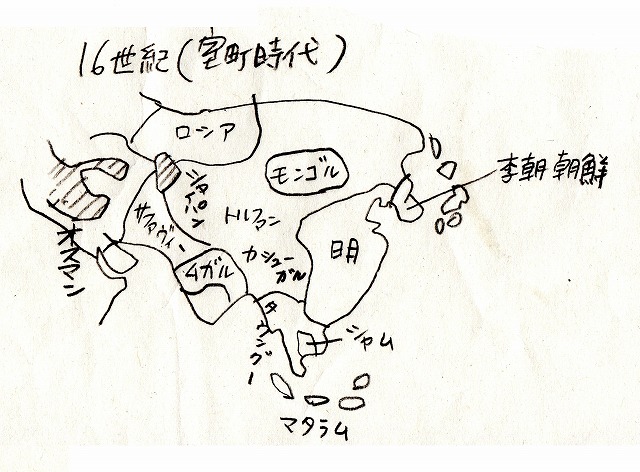 16世紀(室町時代)
ロシア
モンゴル
李朝朝鮮
シャイバン
トルファン
サファヴィー
オスマン
カシュー
ガル
明
ムガル
タウングー
シャム
マタラム